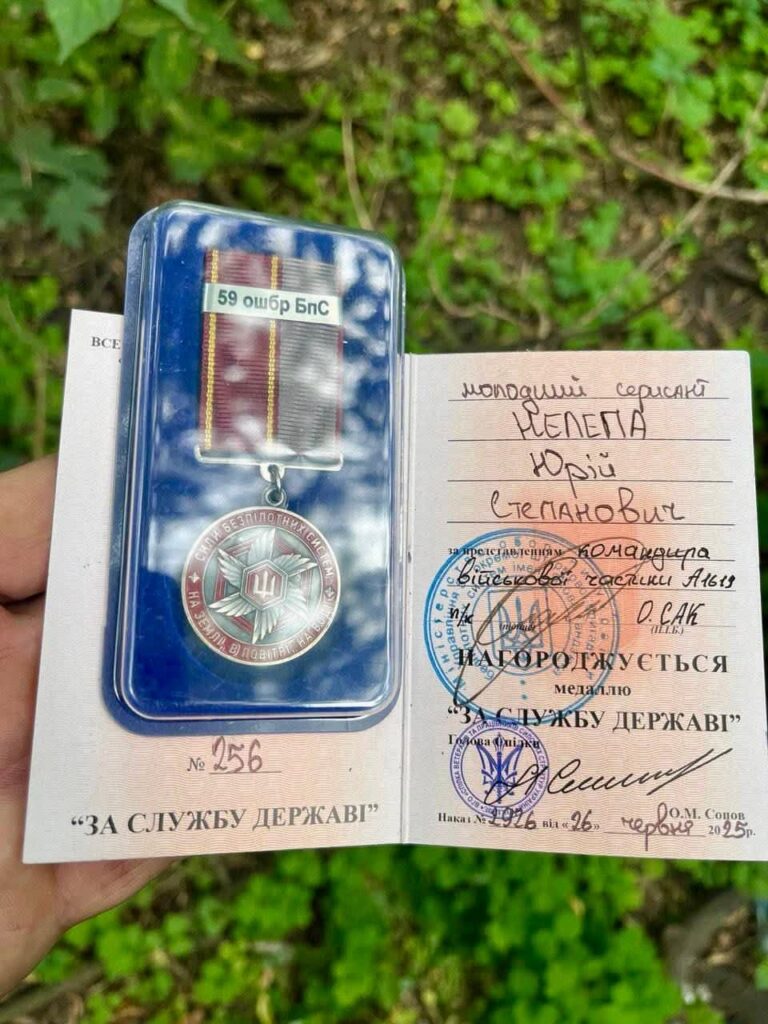 ВСЕ
59 ошбр БпС
СИЛИ БЕЗПІЛОТНИХ СИСТЕМ
НА ЗЕМЛІ, В ПОВІТРІ, НА ВОДІ
№ 256
“ЗА СЛУЖБУ ДЕРЖАВІ”
молодший сержант
НЕЛЕПА
Юрій
Степанович
за представленням командира
військової частини А1619
п/к О. САК
(П.І.Б.)
НАГОРОДЖУЄТЬСЯ
медаллю
“ЗА СЛУЖБУ ДЕРЖАВІ”
Голова Спілки
О.М. Сопов
Наказ № 2926 від «26» червня 2025р.